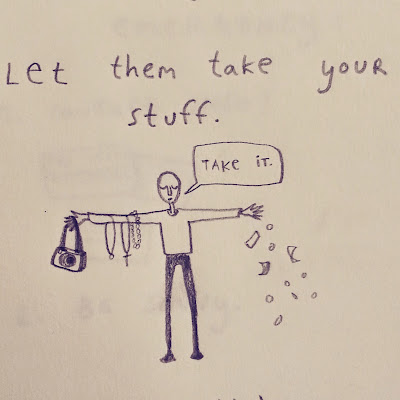 Let them take your
stuff.
TAKE IT.